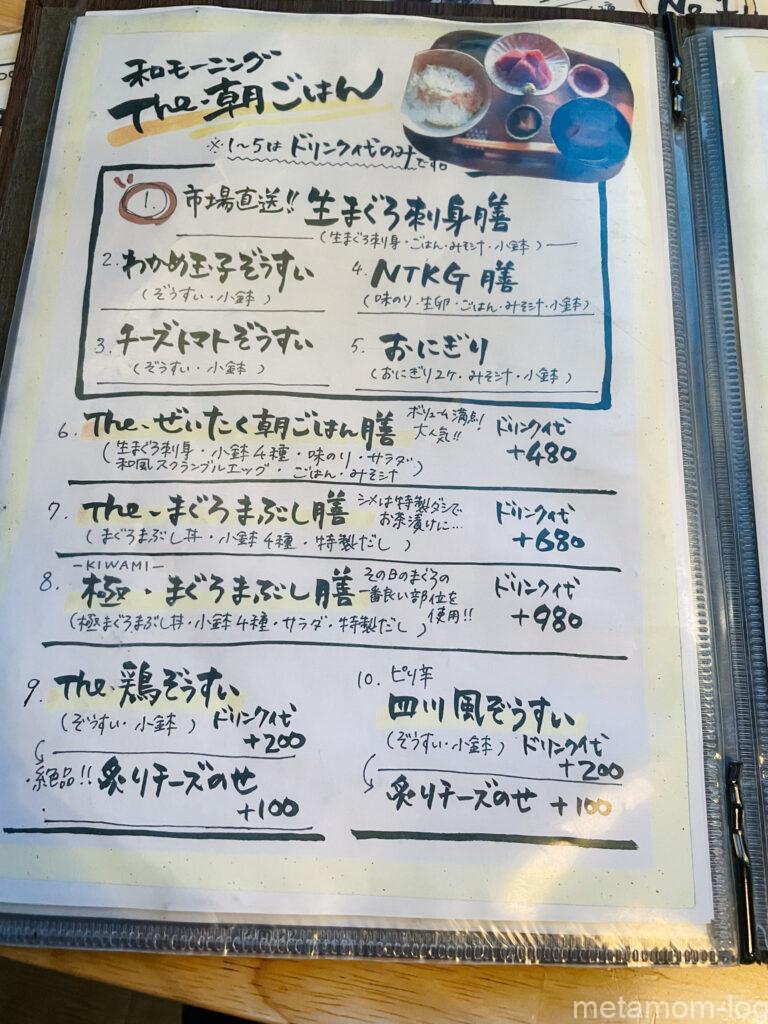 和モーニング
The・朝ごはん
※1~5は ドリンク代のみです。
1. 市場直送!! 生まぐろ刺身膳
(生まぐろ刺身・ごはん・みそ汁・小鉢)
2. わかめ玉子ぞうすい
(ぞうすい・小鉢)
3. チーズトマトぞうすい
(ぞうすい・小鉢)
4. NTKG膳
(味のり・生卵・ごはん・みそ汁・小鉢)
5. おにぎり
(おにぎり2ケ・みそ汁・小鉢)
6. The・ぜいたく朝ごはん膳
ボリューム満点!
大人気!!
(生まぐろ刺身・小鉢4種・味のり・サラダ・
和風スクランブルエッグ・ごはん・みそ汁)
ドリンク代
+480
7. The・まぐろまぶし膳
シメは特製ダシで
お茶漬けに…
(まぐろまぶし丼・小鉢4種・特製だし)
ドリンク代
+680
-KIWAMI-
8. 極・まぐろまぶし膳
その日のまぐろの
一番良い部位を
使用!!
(極まぐろまぶし丼・小鉢4種・サラダ・特製だし)
ドリンク代
+980
9. The・鶏ぞうすい
(ぞうすい・小鉢) ドリンク代
+200
絶品!! 炙りチーズのせ
+100
10. ピリ辛
四川風ぞうすい
(ぞうすい・小鉢) ドリンク代
+200
炙りチーズのせ +100
No.1
metamom-log